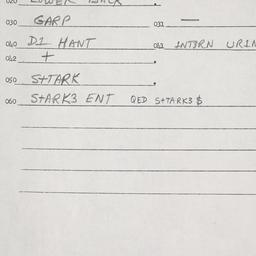 020 LOWER BACK
030 GARP 031 —
040 D1 HANT 041 INT3RN URIN
042 +
050 STTARK
060 STARK3 ENT QED STARK3 $